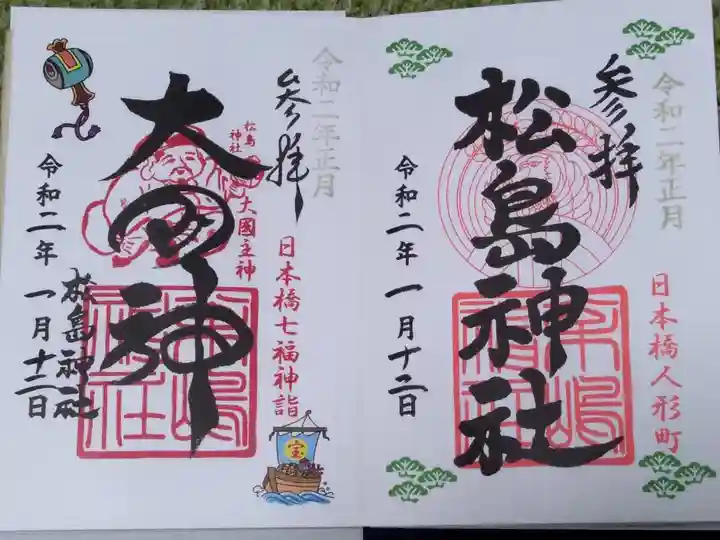 令和二年正月
参拝
松島神社
令和二年 一月十二日
日本橋人形町
令和二年正月
参拝
松島
神社
大國主神
大国神
日本橋七福神詣
令和二年 一月十二日
松島神社
宝